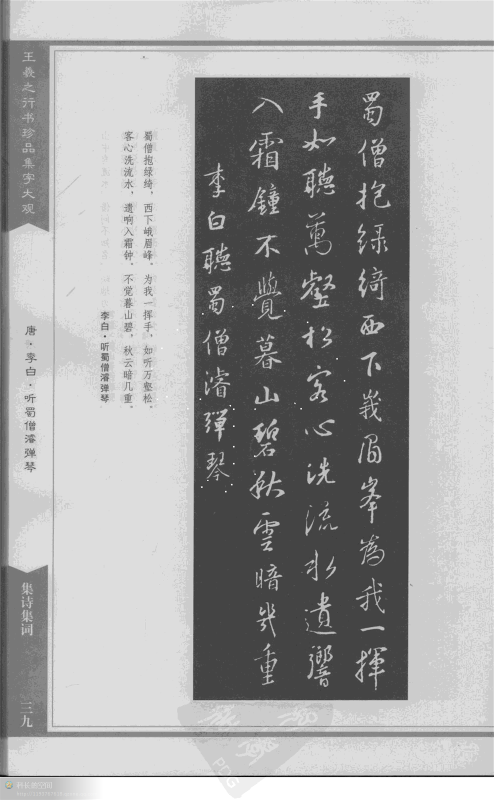 蜀僧抱绿绮西下峩眉峯為我一揮
手如聽萬壑松客心洗流水遺響
入霜鐘不覺暮山碧秋雲暗幾重
李白聽蜀僧濬彈琴
蜀僧抱绿绮，西下峨眉峰。为我一挥手，如听万壑松。
客心洗流水，遗响入霜钟。不觉暮山碧，秋云暗几重。
李白·听蜀僧濬弹琴
王羲之行书珍品集字大观
唐·李白·听蜀僧濬弹琴
集诗集词
三九
PDG